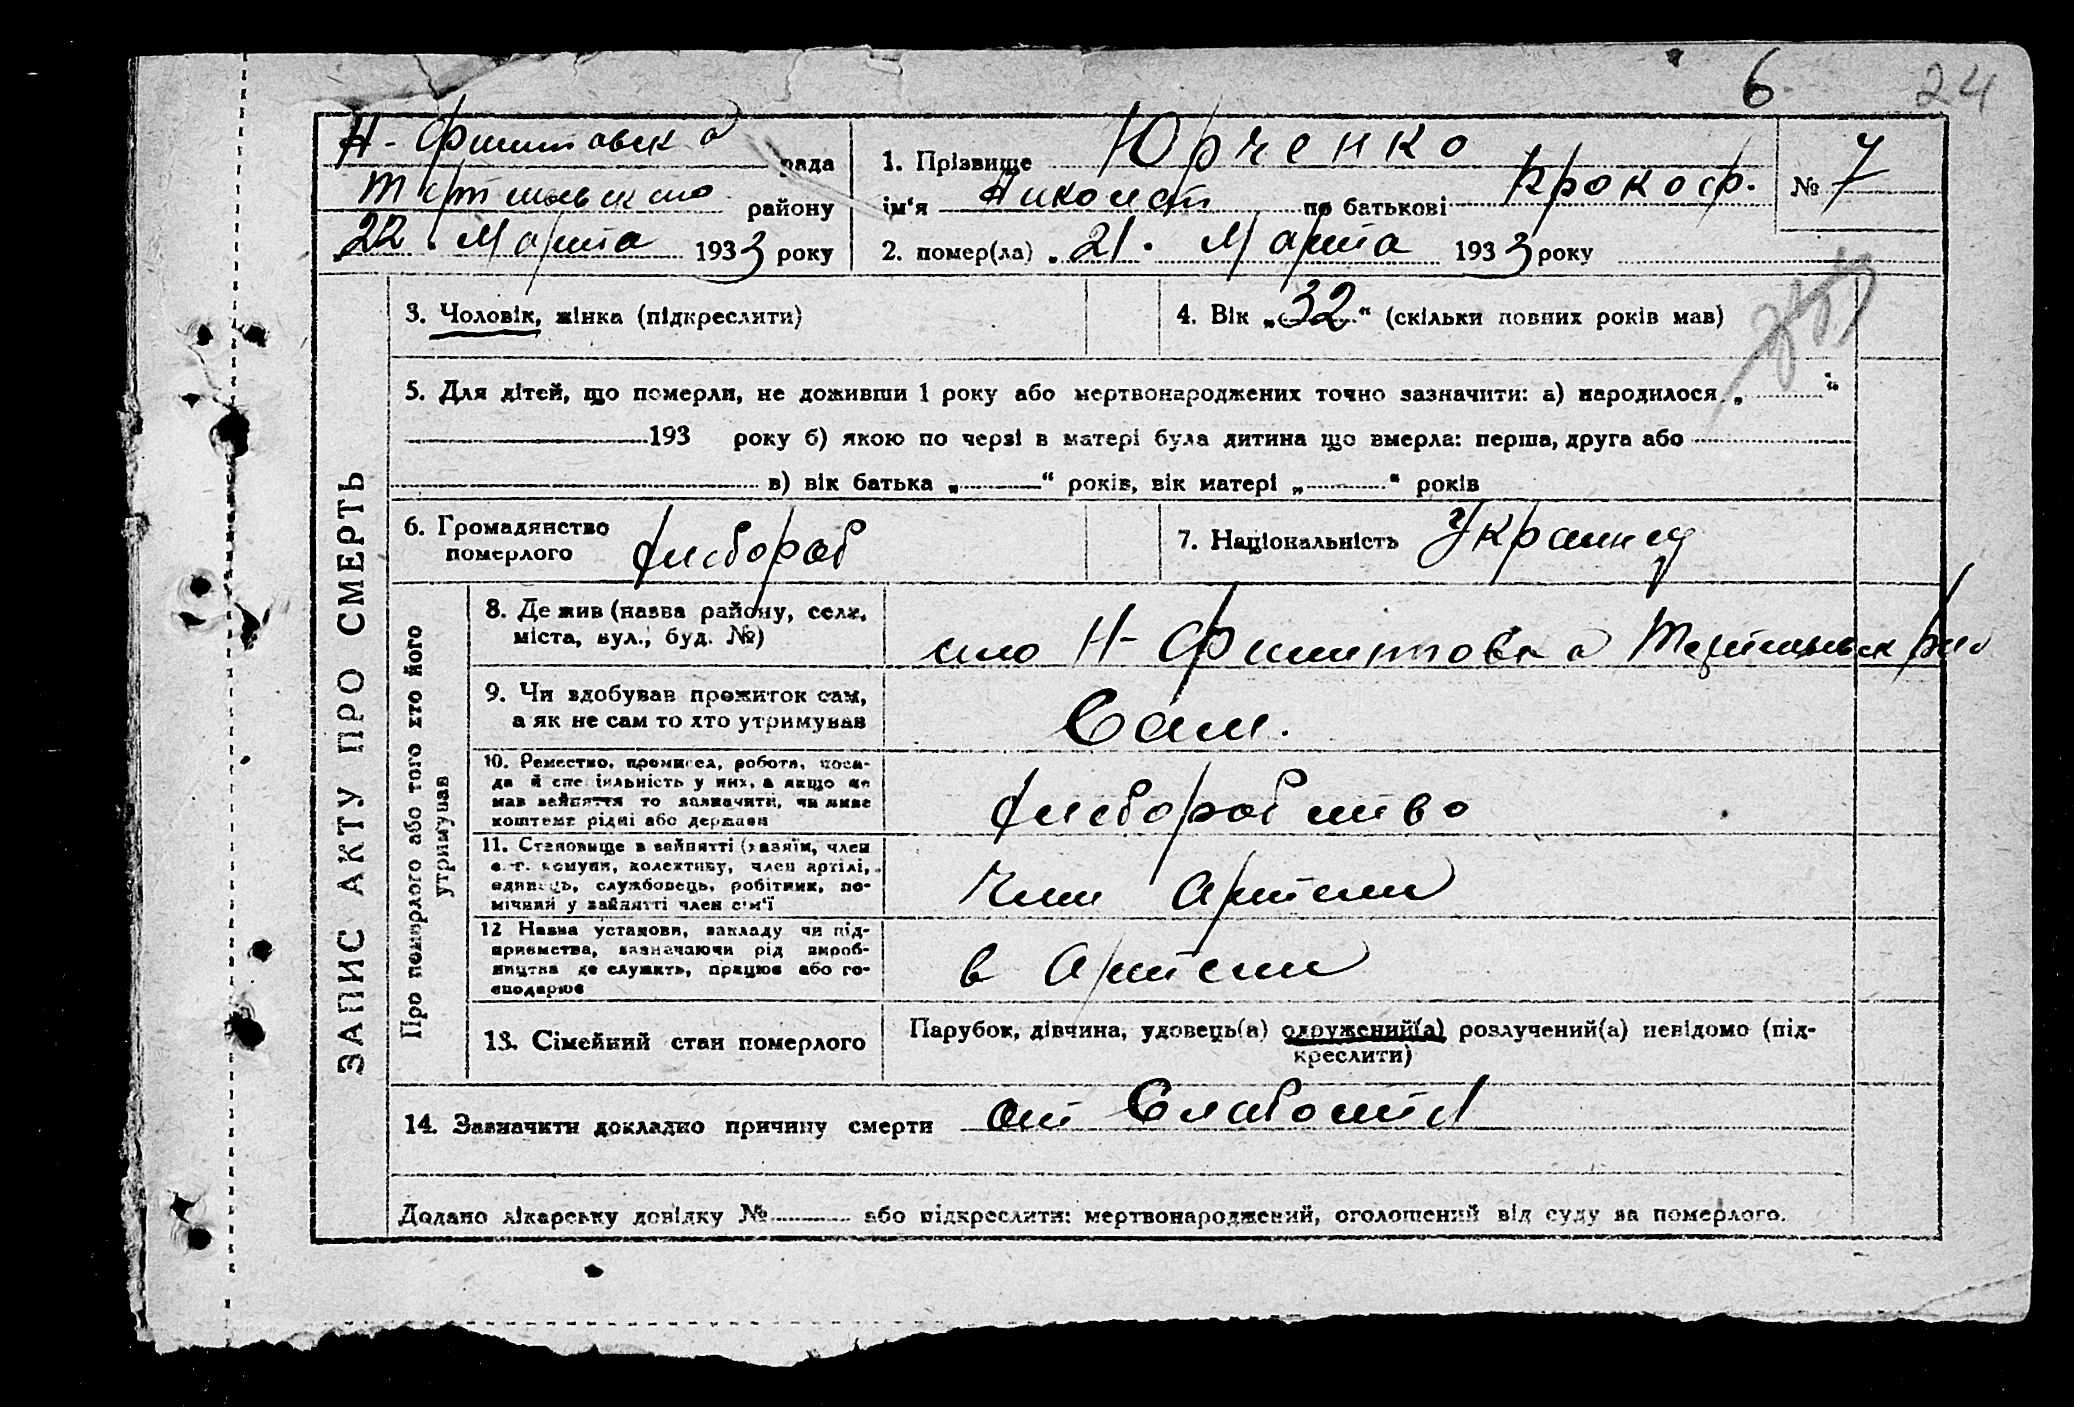 6 24
Н-Филиповска рада
району
22. Марта 1933 року
1. Прізвище Юрченко
ім'я Николай по батькові Прокоф.
№ 7
2. помер(ла) „21. Марта 1933 року
ЗАПИС АКТУ ПРО СМЕРТЬ
3. Чоловік, жінка (підкреслити)
4. Вік „32“ (скільки повних років мав)
5. Для дітей, що померли, не доживши 1 року або мертвонароджених точно зазначити: а) народилося „ “
193 року б) якою по черзі в матері була дитина що вмерла: перша, друга або
в) вік батька „ “ років, вік матері „ “ років
6. Громадянство
померлого хлебороб
7. Національність Украинец
Про померлого або того хто його
утримував
8. Де жив (назва району, села,
міста, вул., буд. №)
село Н-Филиповка
9. Чи здобував прожиток сам,
а як не сам то хто утримував
Сам.
10. Ремество, промисел, робота, поса-
да й спеціяльність у них, а якщо не
мав зайняття то зазначити, чи живе
коштем рідні або держави
хлеборобство
11. Становище в зайнятті (хазяїн, член
с.-г. комуни, колективу, член артілі,
одинець, службовець, робітник, по-
мічний у зайнятті член сім'ї
Член Артели
12 Назва установи, закладу чи під-
приємства, зазначаючи рід вироб-
ництва де служить, працює або го-
сподарює
в Артели
13. Сімейний стан померлого
Парубок, дівчина, удовець(а) одружений(а) розлучений(а) невідомо (під-
креслити)
14. Зазначити докладно причину смерти От Слабости
Додано лікарську довідку № або підкреслити: мертвонароджений, оголошений від суду за померлого.